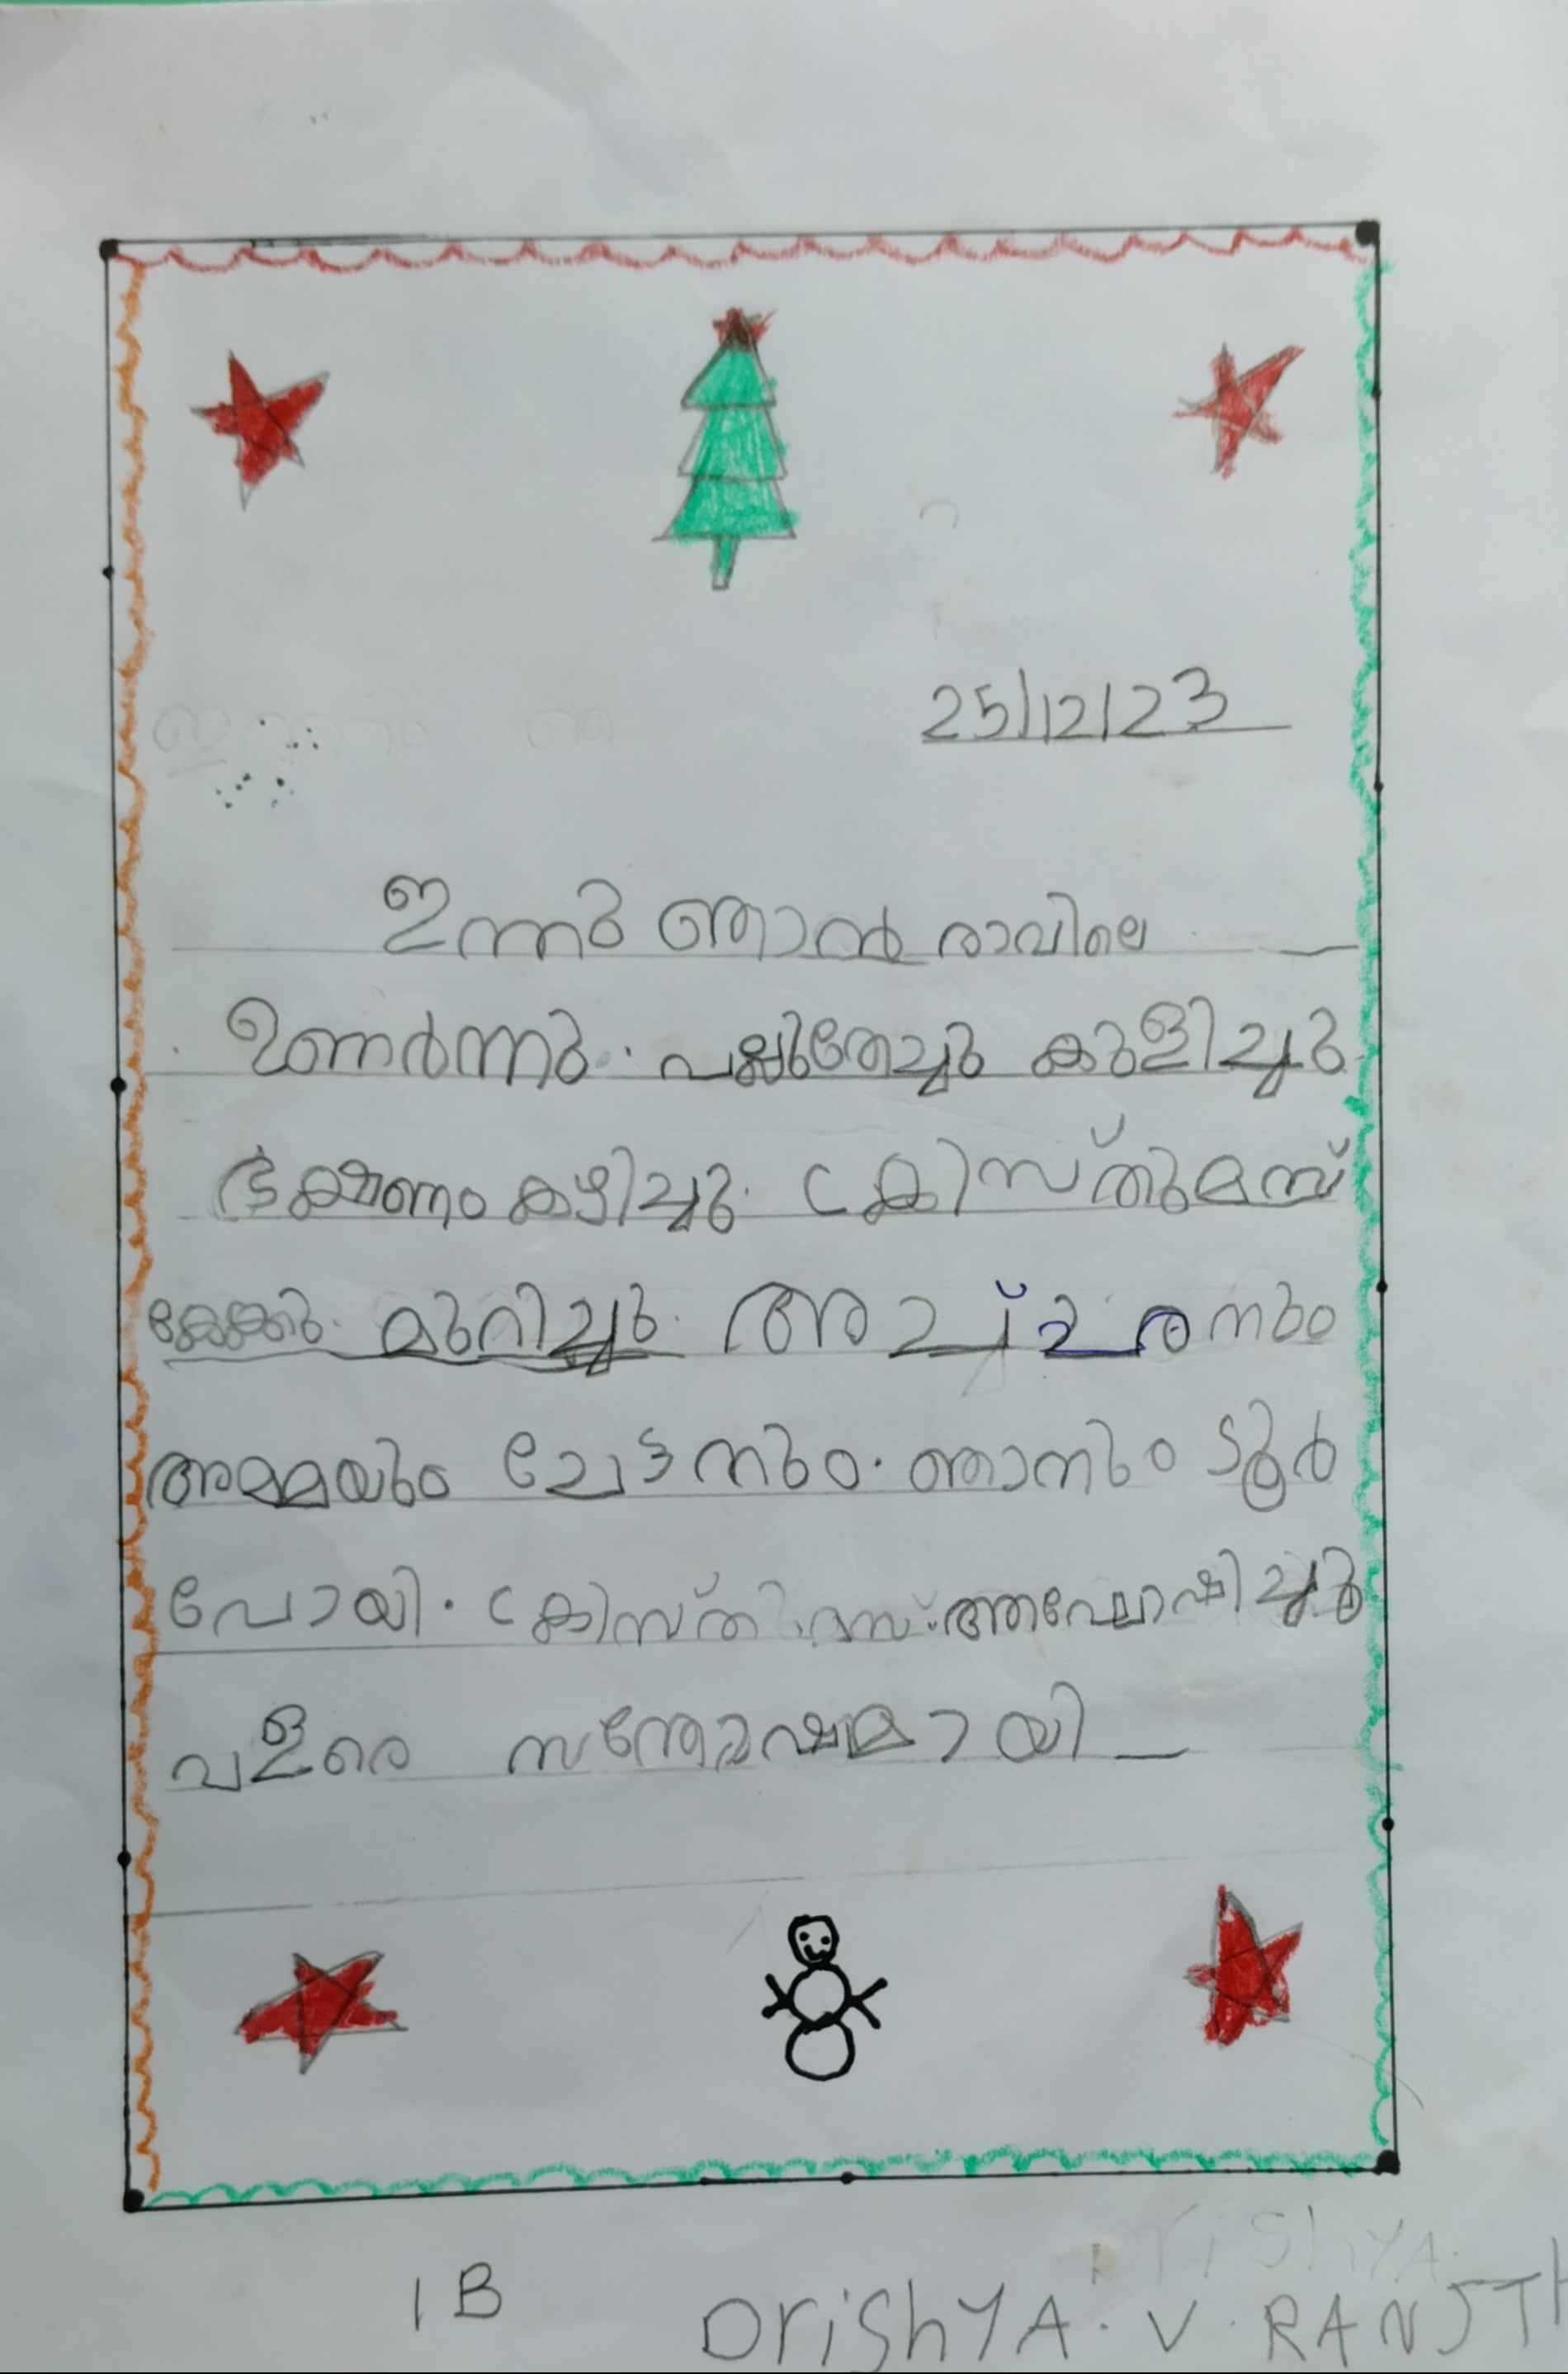 25/12/23
ഇന്നു ഞാൻ രാവിലെ
ഉണർന്നു. പല്ലുതേച്ചു കുളിച്ചു
ഭക്ഷണം കഴിച്ചു. ക്രിസ്തുമസ്
കേക്കു മുറിച്ചു. അച്ഛനും
അമ്മയും ചേട്ടനും. ഞാനും ടൂർ
പോയി. ക്രിസ്തുമസ് ആഘോഷിച്ചു
വളരെ സന്തോഷമായി
1 B
DrishYA. V. RANJITH